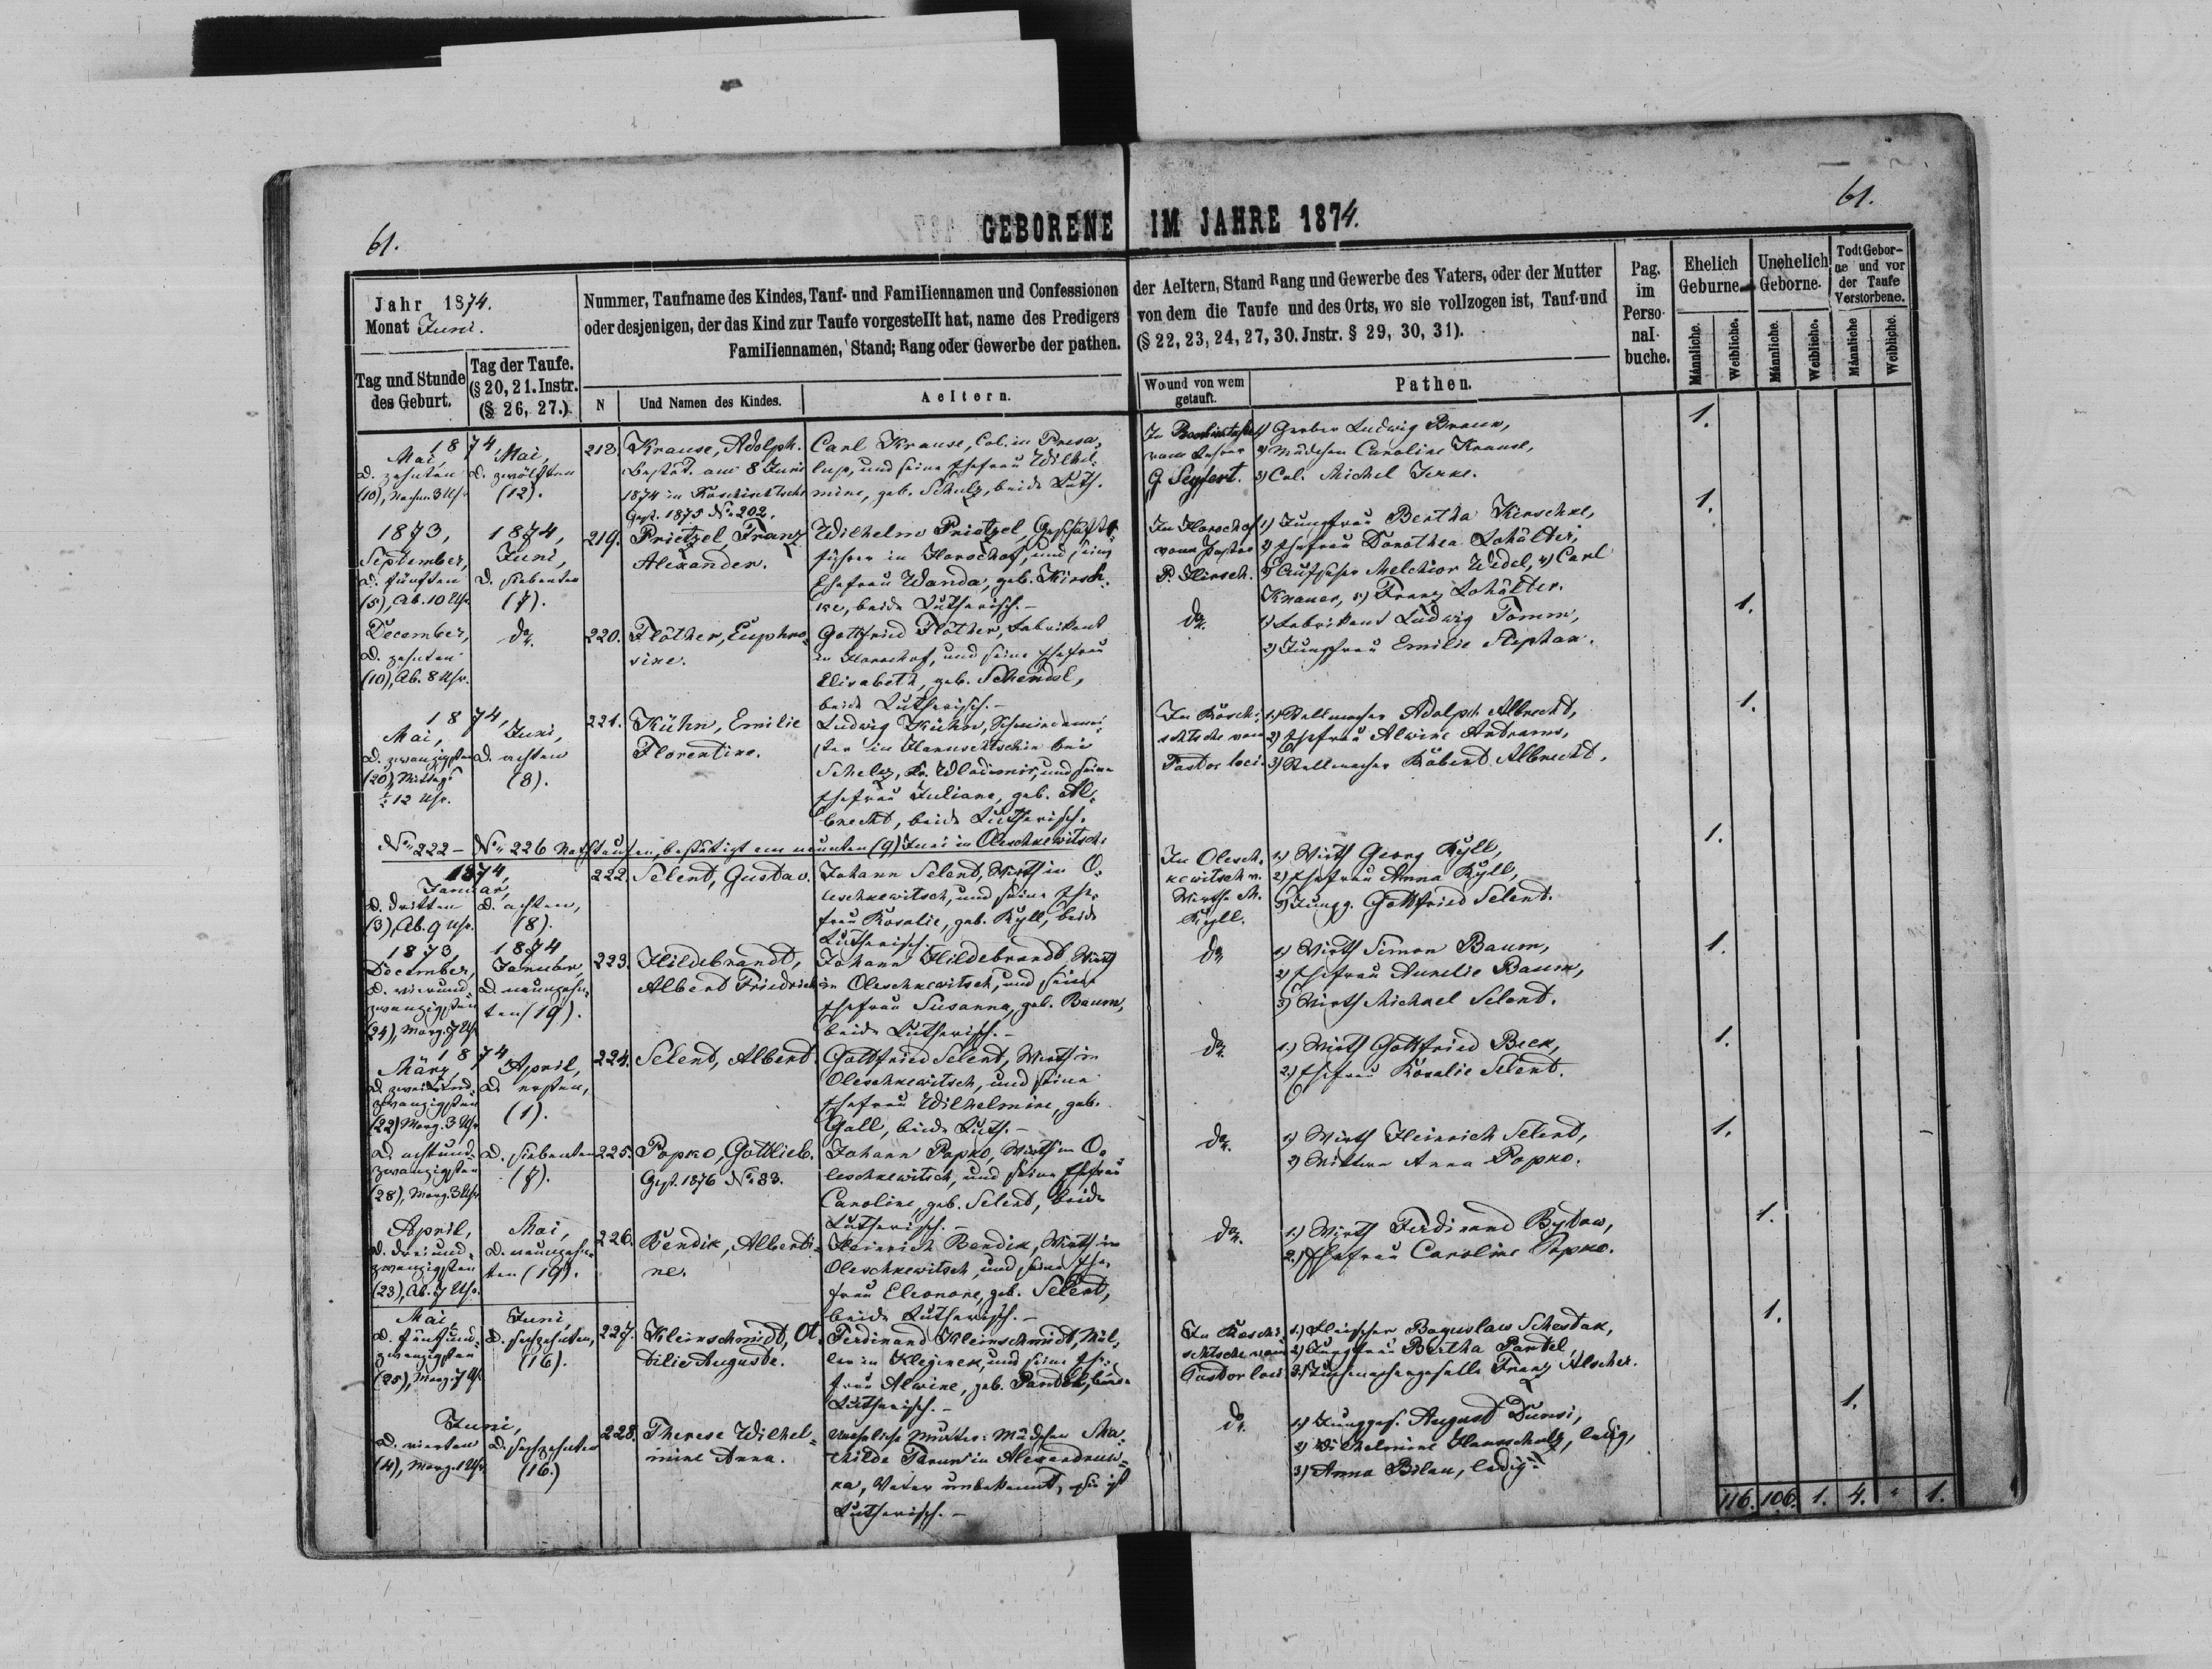 61.
61.
GEBORENE IM JAHRE 1874.
Jahr 1874.
Monat Juni.
Tag und Stunde
des Geburt.
Tag der Taufe.
(§ 20, 21. Instr.
(§ 26, 27.)
Nummer, Taufname des Kindes, Tauf- und Familiennamen und Confessionen
oder desjenigen, der das Kind zur Taufe vorgestellt hat, name des Predigers
Familiennamen, Stand; Rang oder Gewerbe der pathen.
N
Und Namen des Kindes.
Aeltern.
der Aeltern, Stand Rang und Gewerbe des Vaters, oder der Mutter
von dem die Taufe und des Orts, wo sie vollzogen ist, Tauf-und
(§ 22, 23, 24, 27, 30. Jnstr. § 29, 30, 31).
Wo und von wem
getauft.
Pathen.
Pag.
im
Perso-
nal-
buche.
Ehelich
Geburne.
Unehelich
Geborne.
Todt Gebor-
ne und vor
der Taufe
Verstorbene.
Männliche.
Weibliche.
Männliche.
Weibliche.
Männliche
Weibliche.
1874,
Mai,
d. zehnten
(10), Nachm. 3 Uhr
Mai,
d. zwölften
(12).
218.
Krause, Adolph.
Bestät. am 8 Juni
1874 in Roschischtsche
Gest. 1875 No. 202.
Carl Krause, Col. in Presa-
lup, und seine Ehefrau Wilhel-
mine, geb. Schulz, beide Luth.
vom Lehrer
G. Seyfert.
1) Gerber Ludwig Braun,
2) Mädchen Caroline Krause,
3) Col. Michel
1.
1873,
September,
d. fünften
(5), Ab. 10 Uhr
1874,
Juni,
d. siebenten
(7).
219.
Prietzel, Franz
Alexander.
Wilhelm Prietzel, Geschäfts-
führer in Horochof, und seine
Ehefrau Wanda, geb. Kirsch-
ke, beide Lutherisch.-
In Horochof
vom Pastor
P. Hirsch.
1) Jungfrau Bertha Kirschke,
2) Ehefrau Dorothea Lohälter,
3) Aufseher Melchior Wedel, 4) Carl
Knauer, 5) Franz Lohälter.
1.
December,
d. zehnten
(10), Ab. 8 Uhr.
do.
220.
Flöther, Euphro-
sine.
Gottfried Flöther, Fabrikant
in Horochof, und seine Ehefrau
Elisabeth, geb. Schendel,
beide Lutherisch.-
do.
1) Fabrikant Ludwig Tomm,
2) Jungfrau Emilie Stephan.
1.
1874,
Mai,
d. zwanzigsten
(20) Mittags
12 Uhr.
Juni,
d. achten
(8).
221.
Kühn, Emilie
Florentine.
Ludwig Kühn, Schmiedemei-
ster in
Kr. Wladimir, und seine
Ehefrau Juliane, geb. Al-
brecht, beide Lutherisch.
In Rosch-
schtsche vom
Pastor loci.
1) Stellmacher Adolph Albrecht,
2) Ehefrau Alwine
3) Stellmacher Robert Albrecht.
1.
No. 222 - No. 226 Nothtaufen, bestätigt am neunten (9) Juni in Oleschkewitsch:
1874,
Januar,
d. dritten
(3), Ab. 9 Uhr.
d. achten,
(8).
222.
Selent, Gustav.
Johann Selent, Wirth in O-
leschkewitsch, und seine Ehe-
frau Rosalie, geb. Kyll, beide
Lutherisch.
In Olesch-
kewitsch v.
Wirthe M.
Kyll.
1) Wirth Georg Kyll,
2) Ehefrau Anna Kyll,
3) Jungg. Gottfried Selent.
1.
1873,
December,
d. vierund-
zwanzigsten
(24), Morg. 7 Uhr
1874
Januar,
d. neunzehn-
ten (19).
223.
Hildebrandt,
Albert Friedrich
Johann Hildebrandt, Wirth
in Oleschkewitsch, und seine
Ehefrau Susanna, geb. Baum,
beide Lutherisch.-
do.
1) Wirth Simon Baum,
2) Ehefrau Aurelie Baum,
3) Wirth Michael Selent.
1.
1874,
März,
d. zweiund-
zwanzigsten
(22) Morg. 3 Uhr
April,
d. ersten,
(1).
224.
Selent, Albert.
Gottfried Selent, Wirth in
Oleschkewitsch, und seine
Ehefrau Wilhelmine, geb.
Gall, beide Luth.-
do.
1.) Wirth Gottfried Beck,
2.) Ehefrau Rosalie Selent.
1.
d. achtund-
zwanzigsten
(28), Morg. 3 Uhr
d. siebenten
(7).
225.
Popko, Gottlieb.
Gest. 1876 No. 83.
Johann Popko, Wirth in O-
leschkewitsch, und seine Ehefrau
Caroline, geb. Selent, beide
Lutherisch.-
do.
1) Wirth Heinrich Selent,
2) Wittwe Anna Popko.
1.
April,
d. dreiund-
zwanzigsten
(23), Ab. 7 Uhr.
Mai,
d. neunzehn-
ten (19).
226.
Bendik, Alberti-
ne.
Heinrich Bendik, Wirth in
Oleschkewitsch, und seine Ehe-
frau Eleonore, geb. Selent,
beide Lutherisch.-
do.
1.) Wirth Ferdinand Bytow,
2.) Ehefrau Caroline Popko.
1.
Mai,
d. fünfund-
zwanzigsten
(25), Morg. 7 Uhr
Juni,
d. sechzehnten,
(16).
227.
Kleinschmidt, Ot-
tilie Auguste.
Ferdinand Kleinschmidt, Mül-
ler in und seine Ehe-
frau Alwine, geb. Pantel, beide
Lutherisch.-
In Roschi-
schtsche vom
Pastor loci
1.) Fleischer Boguslaw Schestak,
2) Jungfrau Bertha Pantel,
3.) Tuchmachergeselle Franz Alscher.
1.
Juni,
d. vierten
(4), Morg. 1 Uhr
d. sechzehnten
(16.)
228.
Therese Wilhel-
mine Anna.
Uneheliche Mutter: Mädchen Ma-
thilde in Alexandrow-
ka, Vater unbekannt, sie ist
Lutherisch.-
do.
1.) Jungges. August
2) Wilhelmine ledig,
3) Anna Bilau, ledig.
1.
116. 106. 1. 4. " 1.